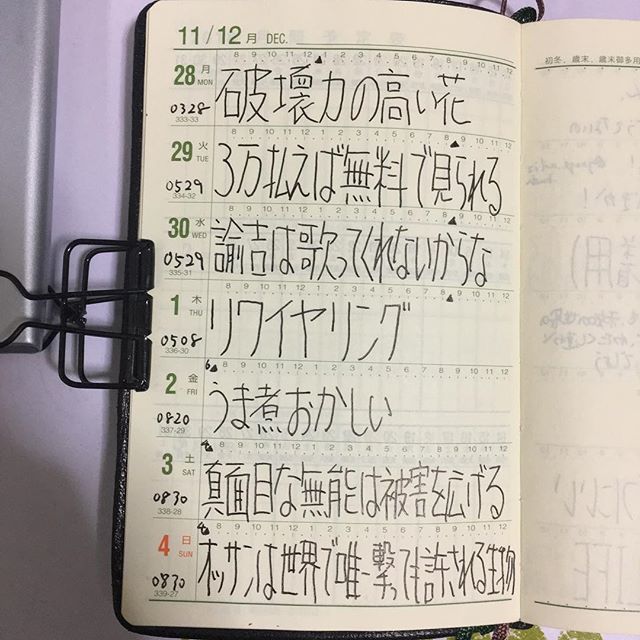 11/12月 DEC.
初冬、歳末、歳末御多用
28 月 MON
0328
333-33
破壊力の高い花
29 火 TUE
0529
334-32
3万払えば無料で見られる
30 水 WED
0529
335-31
諭吉は歌ってくれないからな
1 木 THU
0508
336-30
リワイヤリング
2 金 FRI
0820
337-29
うま煮おかしい
3 土 SAT
0830
338-28
真面目な無能は被害を広げる
4 日 SUN
0830
339-27
オッサンは世界で唯一撃っても許される生物